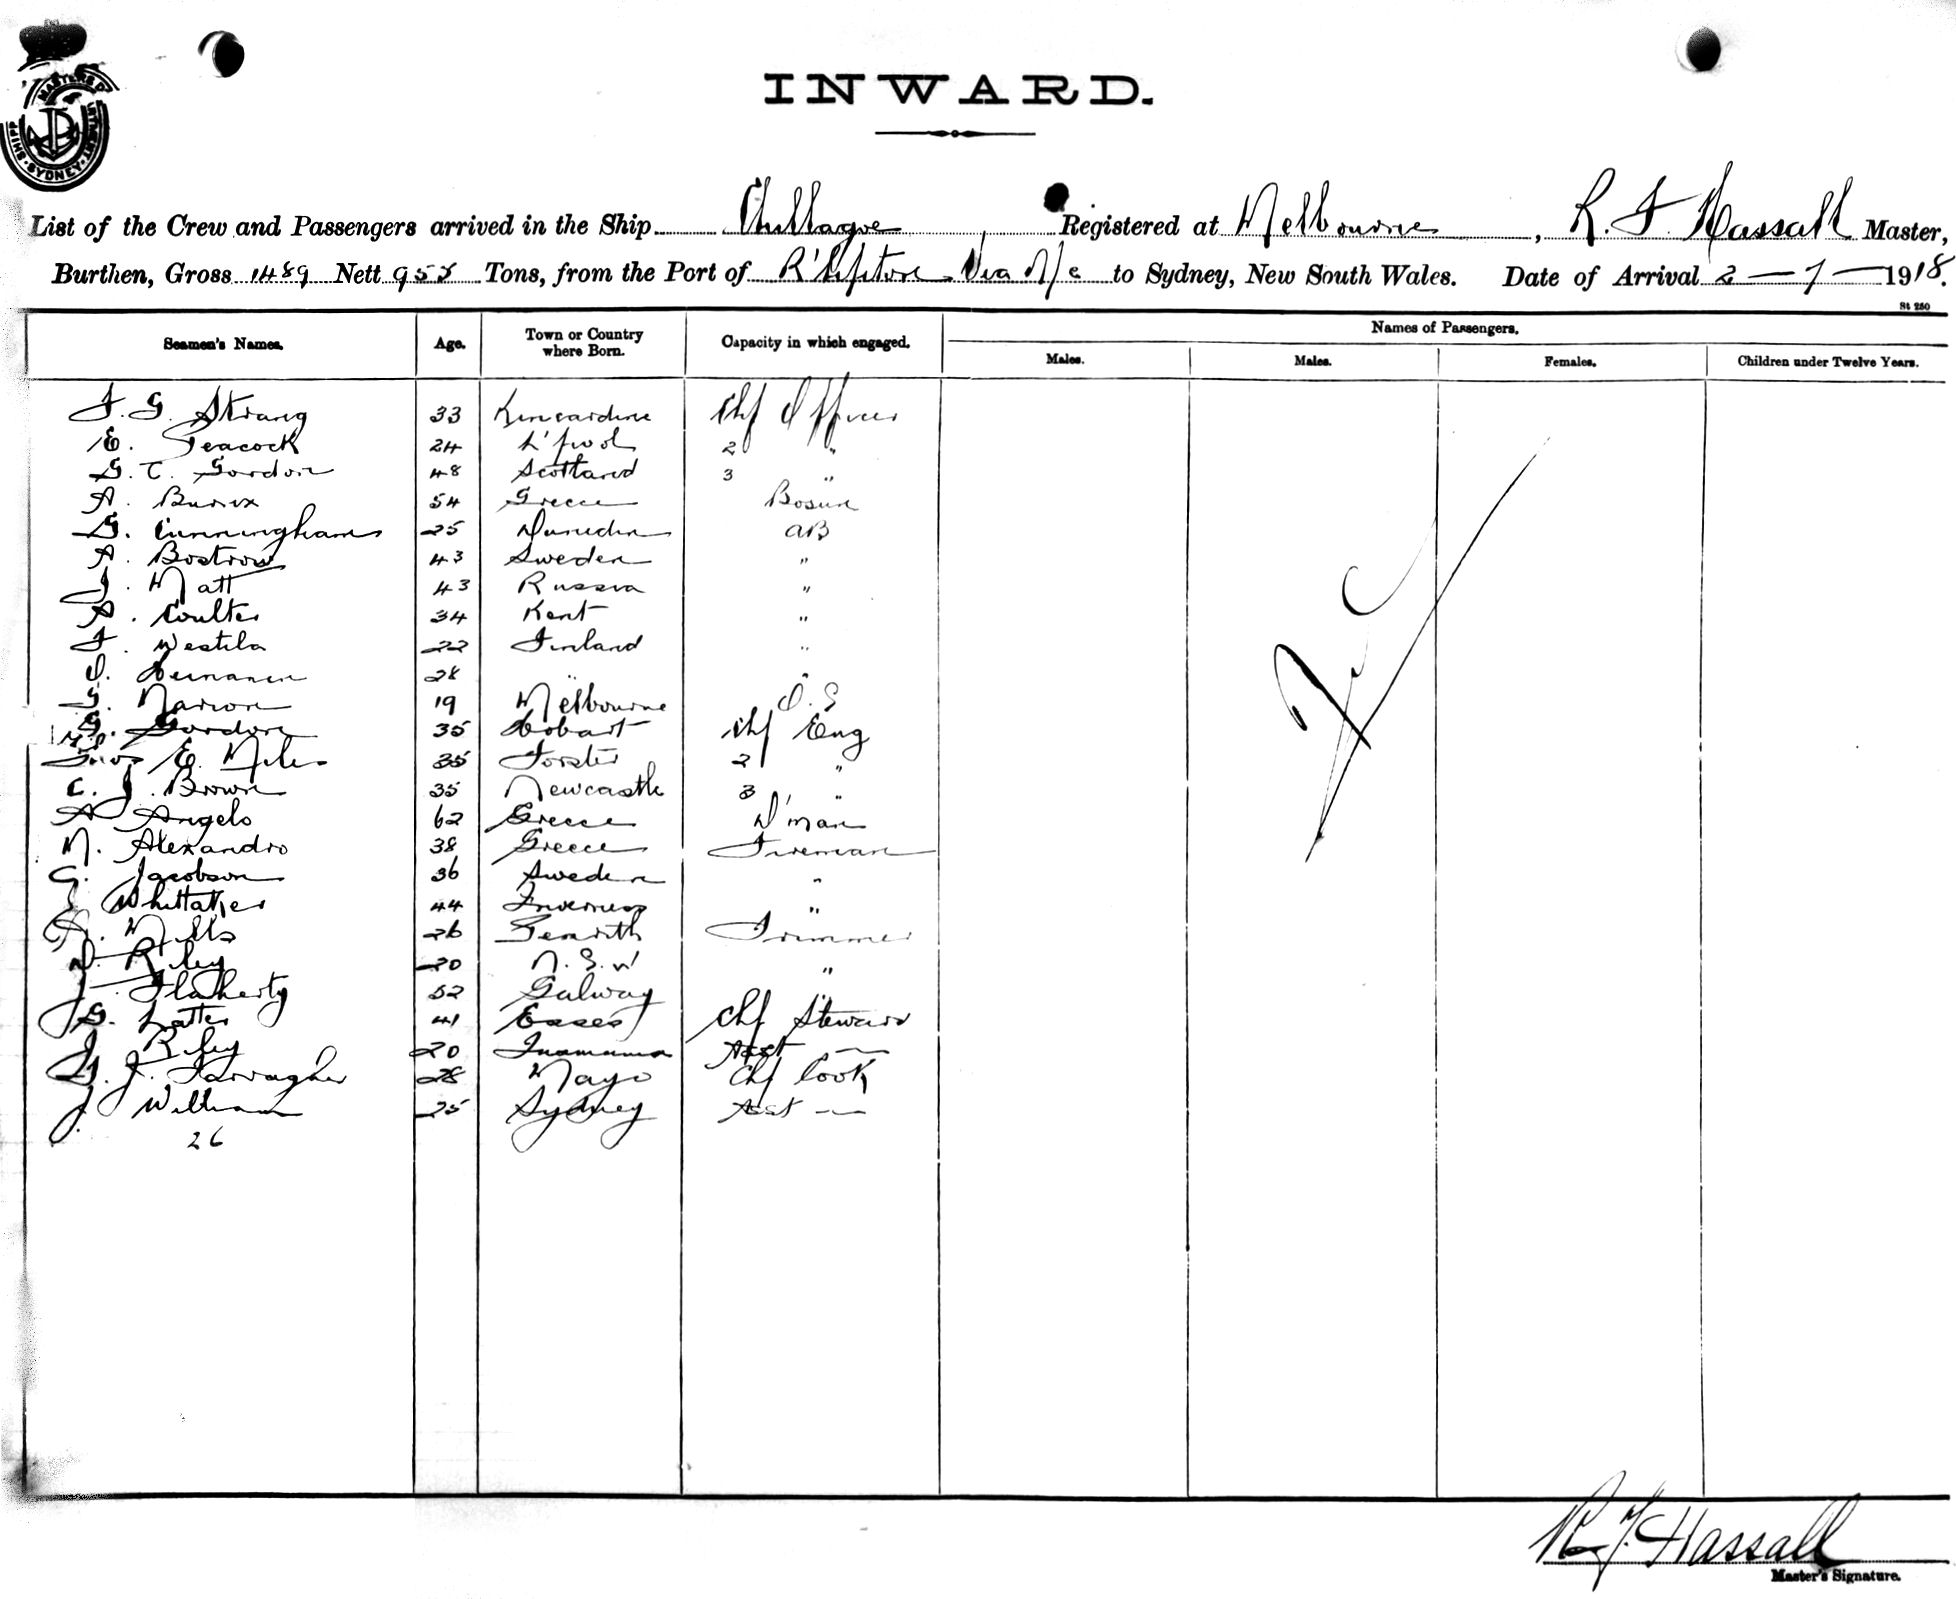 MASTER'S D
SHIPP · SYDNEY · ARTMENT
INWARD.
List of the Crew and Passengers arrived in the Ship Chillagoe, Registered at Melbourne, R. F. Hassall Master,
Burthen, Gross 1489 Nett 955 Tons, from the Port of Via N/c to Sydney, New South Wales. Date of Arrival 2 — 7 — 1918.
St 250
Seamen's Names. Age. Town or Country where Born. Capacity in which engaged. Names of Passengers.
Males. Males. Females. Children under Twelve Years.
F. G. Strang 33 Kincardine Chf Officer
E. Peacock 24 L'pool 2 "
G. C. Gordon 48 Scotland 3 "
A. 54 Greece Bosun
G. Cunningham 25 Dunedin AB
A. Bostrom 43 Sweden "
J. Matt 43 Russia "
A. Coulter 34 Kent "
F. Westila 22 Finland "
O. Heinanen 28 " "
G. Marion 19 Melbourne O.S
G. Gordon 35 Hobart Chf Eng
E. Miles 35 Forster 2 "
C. J. Brown 35 Newcastle 3 "
A Angelo 62 Greece D'man
N. Alexandro 38 Greece Fireman
G. Jacobson 36 Sweden "
J Whittaker 44 Inverness "
A. Mills 26 Penrith Trimmer
D. Riley 20 N.S.W "
J. Flaherty 52 Galway "
G. Latter 41 Essex Chf Steward
J. Riley 20 Asst —
G. J. Farragher 28 Mayo Chf Cook
J. William 25 Sydney Asst —
26
R. F. Hassall
Master's Signature.